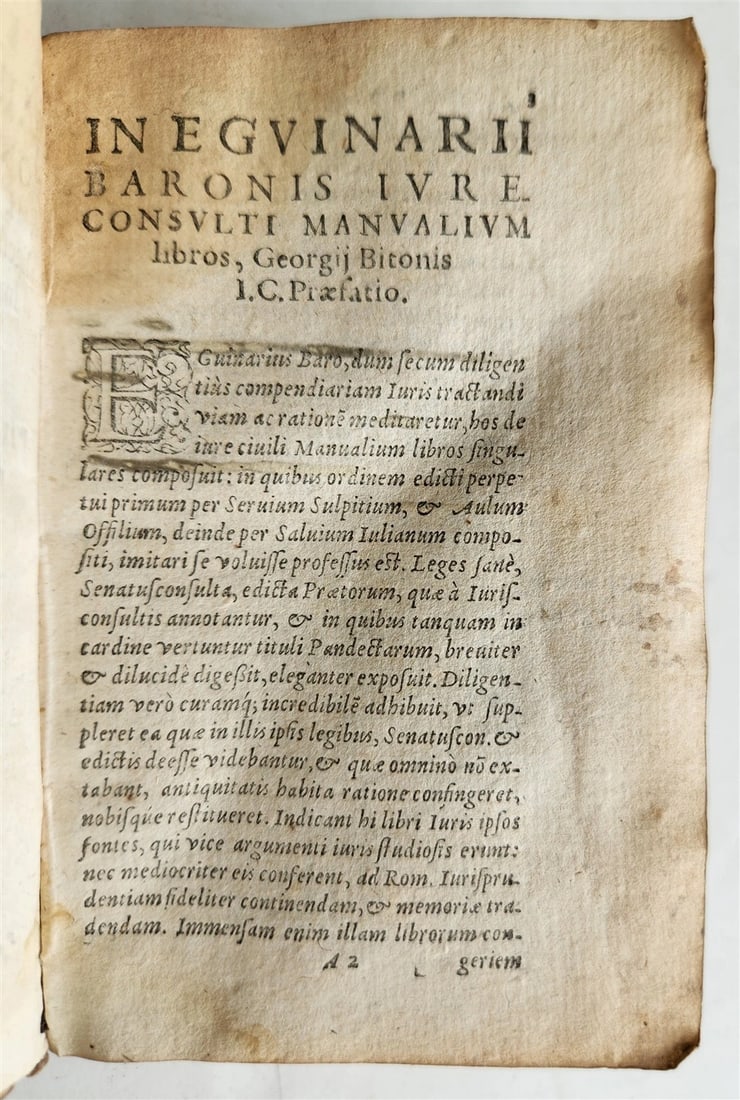 IN EGVINARII
BARONIS IVRE-
CONSVLTI MANVALIVM
libros, Georgij Bitonis
I.C. Præfatio.
EGuinarius Baro, dum secum diligen
tiùs compendiariam Iuris tractandi
viam ac rationē meditaretur, hos de
iure ciuili Manualium libros singu-
lares composuit: in quibus ordinem edicti perpe-
tui primum per Seruium Sulpitium, & Aulum
Offilium, deinde per Saluium Iulianum compo-
siti, imitari se voluisse professus est. Leges sanè,
Senatusconsulta, edicta Prætorum, quæ à Iuris-
consultis annotantur, & in quibus tanquam in
cardine vertuntur tituli Pandectarum, breuiter
& dilucidè digeßit, eleganter exposuit. Diligen-
tiam verò curamq́; incredibilē adhibuit, vt sup-
pleret ea quæ in illis ipsis legibus, Senatuscon. &
edictis deesse videbantur, & quæ omninò nō ex-
tabant, antiquitatis habita ratione confingeret,
nobisque restitueret. Indicant hi libri Iuris ipsos
fontes, qui vice argumenti iuris studiosis erunt:
nec mediocriter eis conferent, ad Rom. Iurispru-
dentiam fideliter continendam, & memoriæ tra-
dendam. Immensam enim illam librorum con-
A 2 geriem